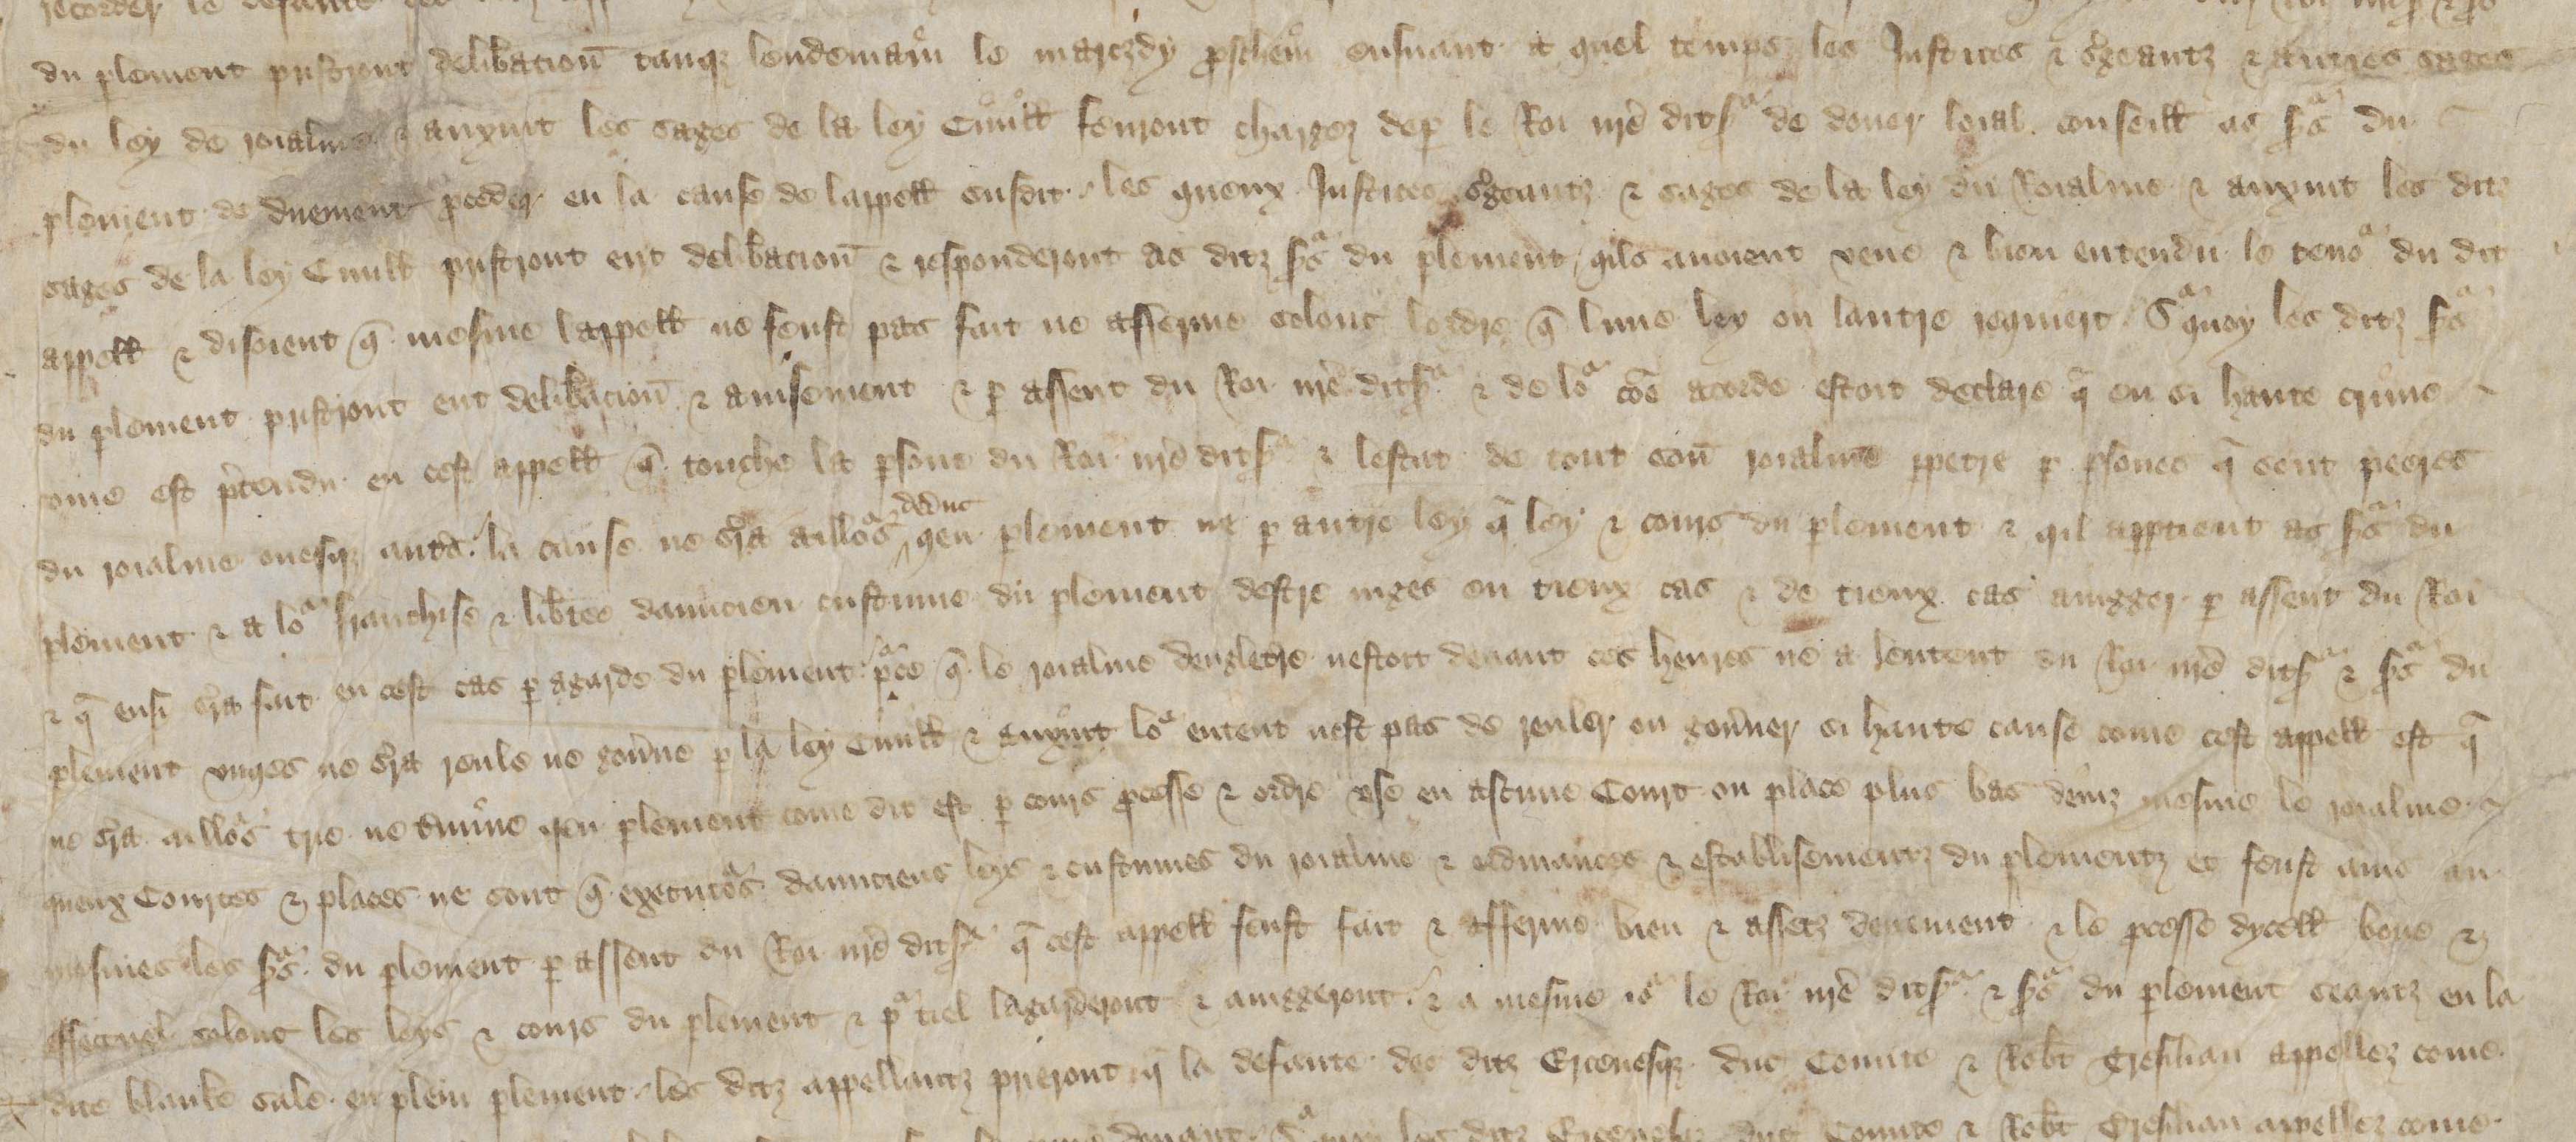 du plement pristront delibacion tanqz lendemain le marczdy pschein ensuant a quel temps les Justices & sgeantz & autres sages
du ley de roialme & auxint les sages de la ley Civill feuront chargez dep le Roi nre ditsr de doner loial conseill as srs du
plement de duement pceder en la cause de lappell susdit / les queux Justices sgeantz & sages de la ley du Roialme & auxint les ditz
sages de la ley Civill pristront ent delibacion & responderont as ditz srs du plement / qils avoient veue & bien entendu le tenor du dit
appell & disoient q mesme lappell ne feust pas fait ne afferme solonc lordre q lune ley ou lautre requiert / Sr quoy les ditz srs
du plement pristront ent delibacion & avisement & p assent du Roi nre ditsr & de lor coe acorde estoit declare q en si haute crime
come est ptendu en cest appell q touche la psone du Roi nre ditsr & lestat de tout son roialme ppetre p psones q sont peeres
du roialme ovesqz autrs / la cause ne sra aillors deduc qen plement ne p autre ley q ley & cours du plement & qil apptient as srs du
plement & a lor franchise & libtee dauncien custume du plement destre juges en tieux cas & de tieux cas ajugger p assent du Roi
& q ensi sra fait en cest cas p agarde du plement / pce q le roialme dengletre nestoit devant ces heures ne a lentent du Roi nre ditsr & srs du
plement unqes ne sra reule ne govne p la ley Civill & auxint lor entent nest pas de reuler ou govner si haute cause come cest appell est q
ne sra aillors trie ne tmine qen plement come dit est p cours pcesse & ordre use en ascune Court ou place plus bas deinz mesme le roialme
queux Courtes & places ne sont q executors daunciens leys & custumes du roialme & ordinances & establisementz du plementz et feust avis au
mesmes les srs du plement p assent du Roi nre ditsr q cest appell feust fait & afferme bien & assetz duement & le pcesse dycell bone &
effectuel solonc les leys & cours du plement & pr tiel lagarderont & ajuggeront / & a mesme jor le Roi nre ditsr & srs du plement seantz en la
dite blanke sale en plein plement / les ditz appellantz prieront q la defaute des ditz Ercevesqz duc Counte & Robt Tresilian appellez come